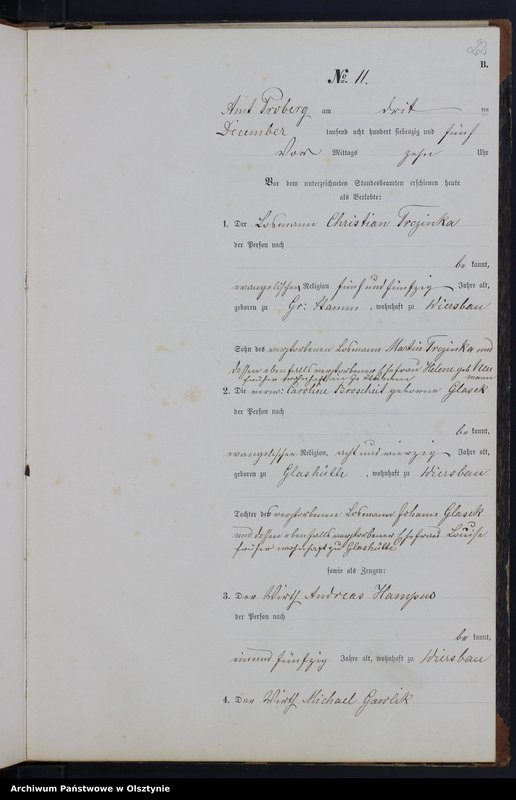 22
B.
No. 11.
Amt Proberg am drit ten
December tausend acht hundert siebenzig und fünf
Vor Mittags zehn Uhr
Vor dem unterzeichneten Standesbeamten erschienen heute
als Verlobte:
1. Der Losmann Christian Trzinka
der Person nach
be kannt,
evangelischer Religion, fünf und fünfzig Jahre alt,
geboren zu Gr: Stamm, wohnhaft zu Wiersbau
Sohn des verstorbenen Losmann Martin Trzinka und
dessen ebenfalls verstorbener Ehefrau Helene geb.
früher wohnhaft in Gr Stamm
2. Die verw: Caroline Broscheit geborene Glasek
der Person nach
be kannt,
evangelischer Religion, acht und vierzig Jahre alt,
geboren zu Glashütte, wohnhaft zu Wiersbau
Tochter des verstorbenen Losmann Johann Glasek
und dessen ebenfalls verstorbener Ehefrau Louise
früher wohnhaft zu Glashütte
sowie als Zeugen:
3. Der Wirth Andreas
der Person nach
be kannt,
ein und fünfzig Jahre alt, wohnhaft zu Wiersbau
4. Der Wirth Michael Gawlik
Archiwum Państwowe w Olsztynie